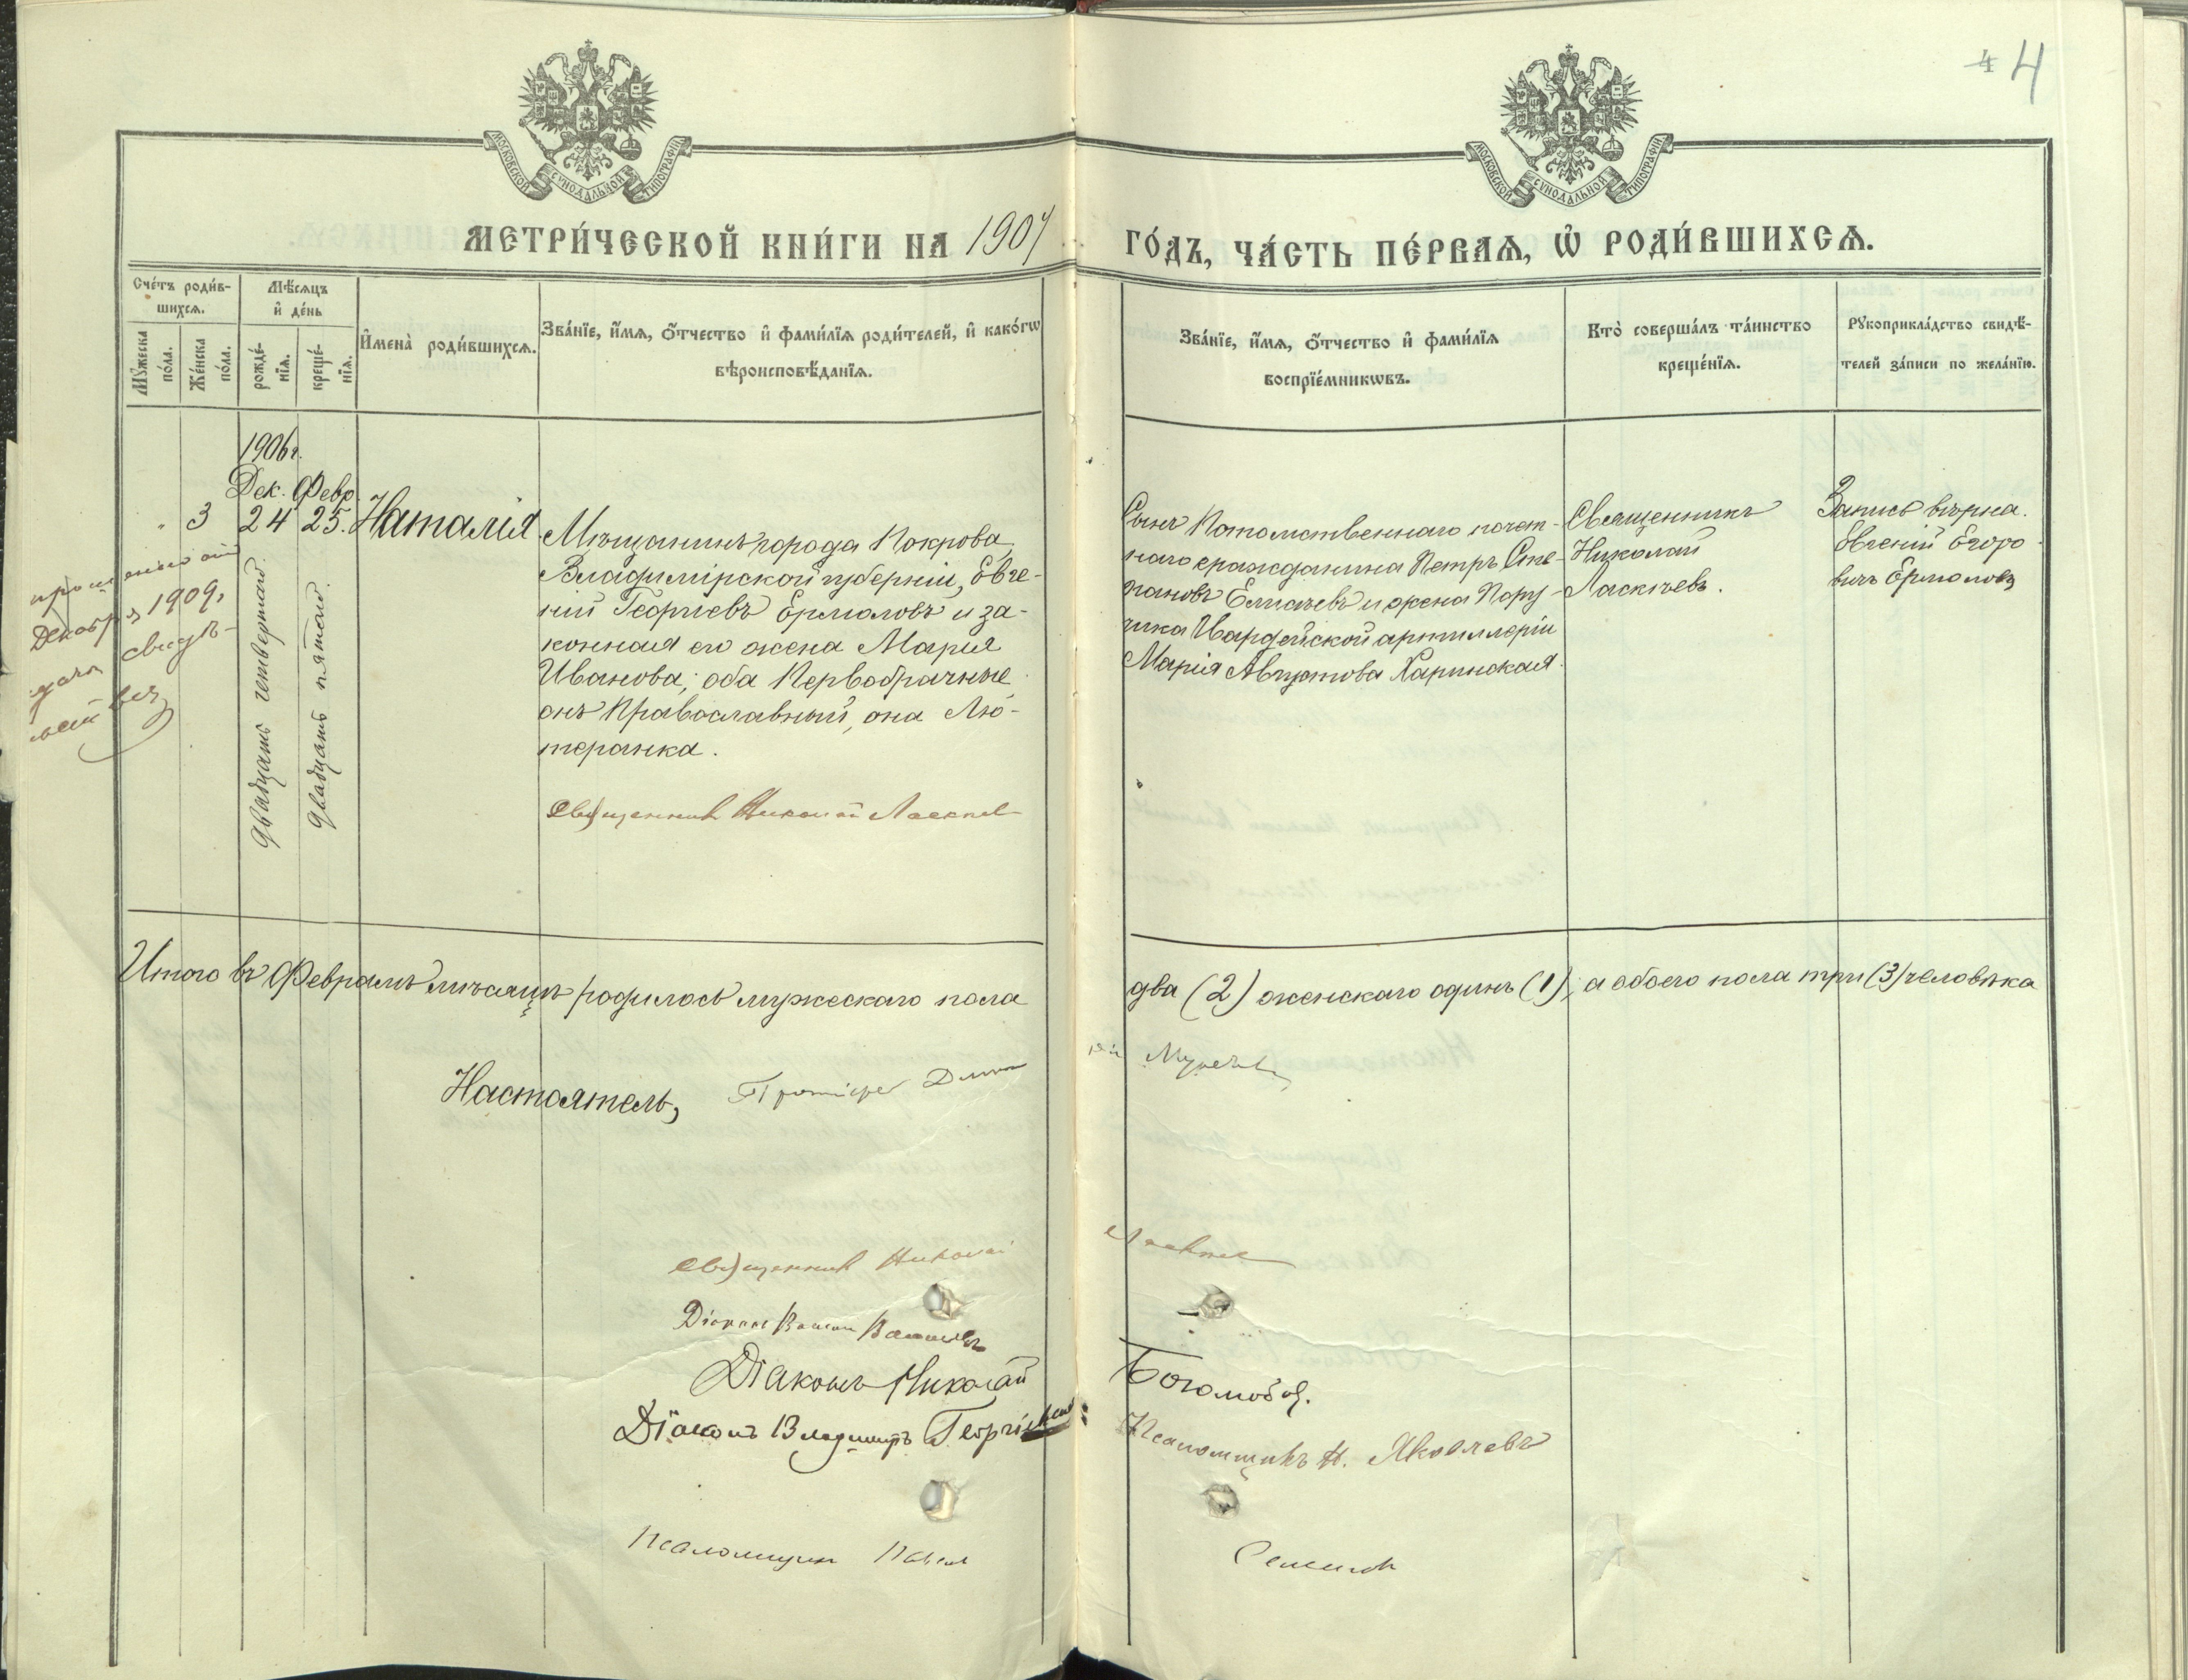 4 4
МОСКОВСКОЙ СѴНОДАЛЬНОЙ ТИПОГРАФІИ
МОСКОВСКОЙ СѴНОДАЛЬНОЙ ТИПОГРАФІИ
МЕТРИ́ЧЕСКОЙ КНИ́ГИ НА 1907 ГО́ДЪ, ЧА́СТЬ ПЕ́РВАѦ, Ѡ҆ РОДИ́ВШИХСѦ.
Сче́тъ роди́в-
шихсѧ.
Мѣ́сѧцъ
и҆ де́нь
Мꙋ́жеска
по́ла.
Же́нска
по́ла.
рожде́-
нїѧ.
креще́-
нїѧ.
И҆мена̀ роди́вшихсѧ.
Зва́нїе, и҆́мѧ, ѻ҆́тчество и҆ фами́лїѧ роди́телей, и҆ како́гѡ
вѣроисповѣ́данїѧ.
Зва́нїе, и҆́мѧ, ѻ҆́тчество и҆ фами́лїѧ
воспрїе́мникѡвъ.
Кто̀ соверша́лъ та́инство
креще́нїѧ.
Рꙋкоприкла́дство свидѣ́-
телей за́писи по жела́нїю.
1906 г.
Дек. Февр.
" 3 24 25.
двадцать четвертаго
двадцать пятаго.
Декабря 1909 г.
Наталія
Мѣщанинъ города Покрова,
Владимірской губерніи, Евге-
ній Георгіевъ Ермоловъ и за-
конная его жена Марія
Иванова; оба первобрачные
онъ Православный, она Лю-
теранка.
Священникъ Николай
Сынъ Потомственнаго почет-
наго гражданина Петръ Сте-
пановъ Елисѣевъ и жена Пору-
чика Гвардейской артиллеріи
Марія Августова Харинская.
Священникъ
Николай
Ласкѣевъ.
Запись вѣрна.
Евгеній Егоро
вичъ Ермоловъ
Итого въ Февралѣ мѣсяцѣ родилось мужескаго пола два (2) женскаго одинъ (1), а обоего пола три (3) человѣка
Настоятель,
Священникъ Николай
Діаконъ
Діаконъ Николай
Діаконъ Владимиръ
Псаломщикъ Н. Яковлевъ
Псаломщикъ Павелъ Семеновъ